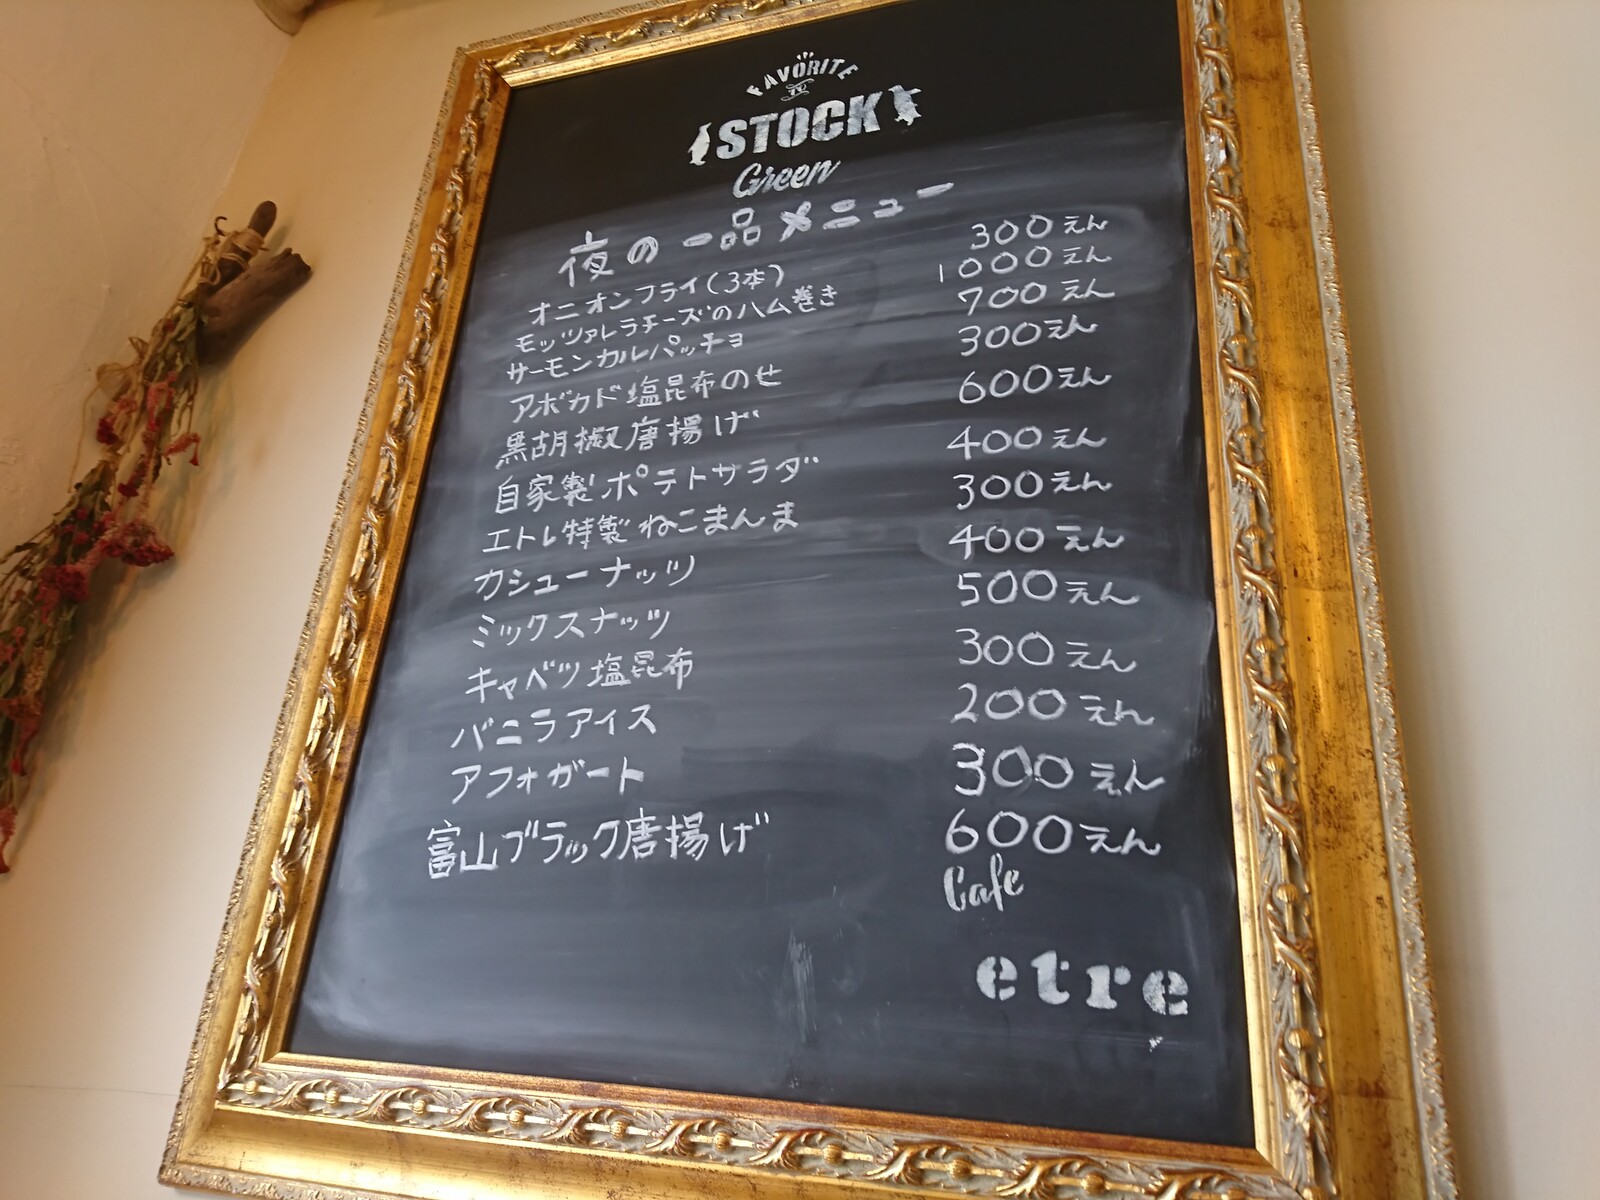 FAVORITE
TO
STOCK
Green
夜の一品メニュー
オニオンフライ(3本) 300えん
モッツァレラチーズのハム巻き 1000えん
サーモンカルパッチョ 700えん
アボカド塩昆布のせ 300えん
黒胡椒唐揚げ 600えん
自家製ポテトサラダ 400えん
エトレ特製ねこまんま 300えん
カシューナッツ 400えん
ミックスナッツ 500えん
キャベツ塩昆布 300えん
バニラアイス 200えん
アフォガート 300えん
富山ブラック唐揚げ 600えん
Cafe
etre